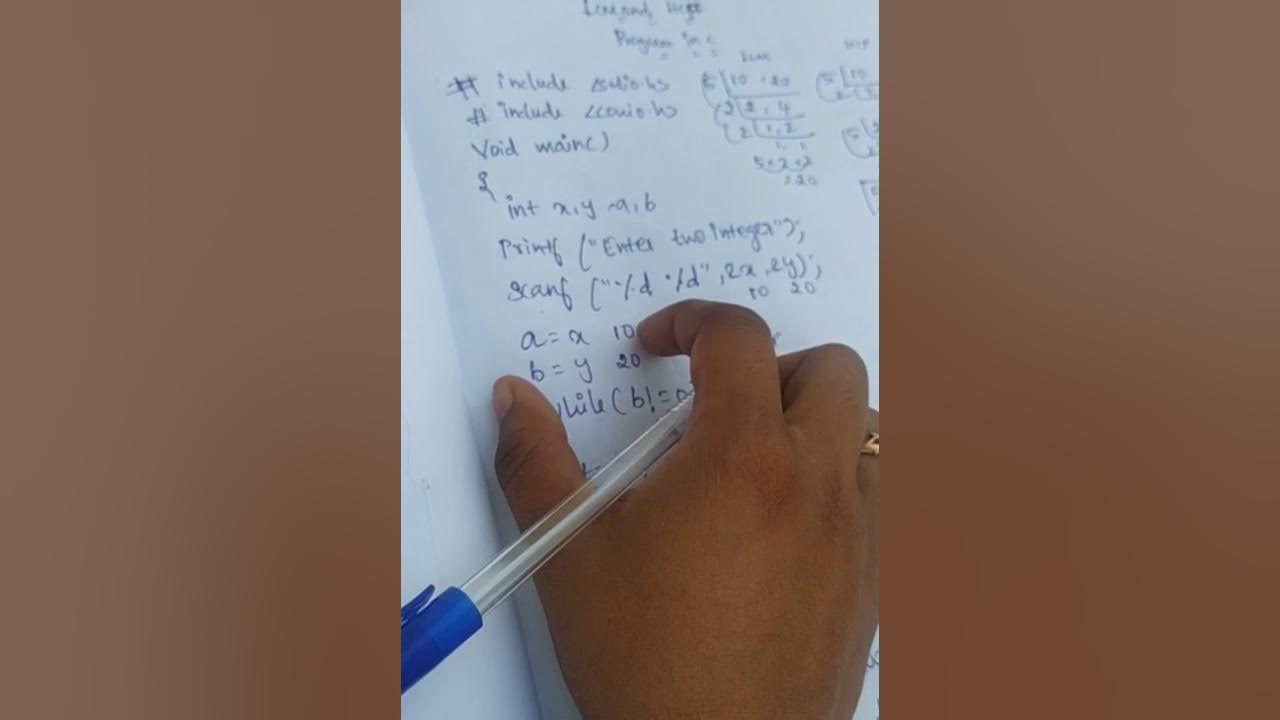 Lcm and Hcf
Program in c
# include <stdio.h>
# include <conio.h>
Void main()
{
int x,y,a,b
Printf ("Enter two integer");
Scanf ("%d %d", &x, &y);
10 20
a = x 10
b = y 20
while (b! = 0
Lcm
5 10, 20
2 2, 4
2 1, 2
1, 1
5×2×2
= 20
Hcf
5 10
2 2
5
2